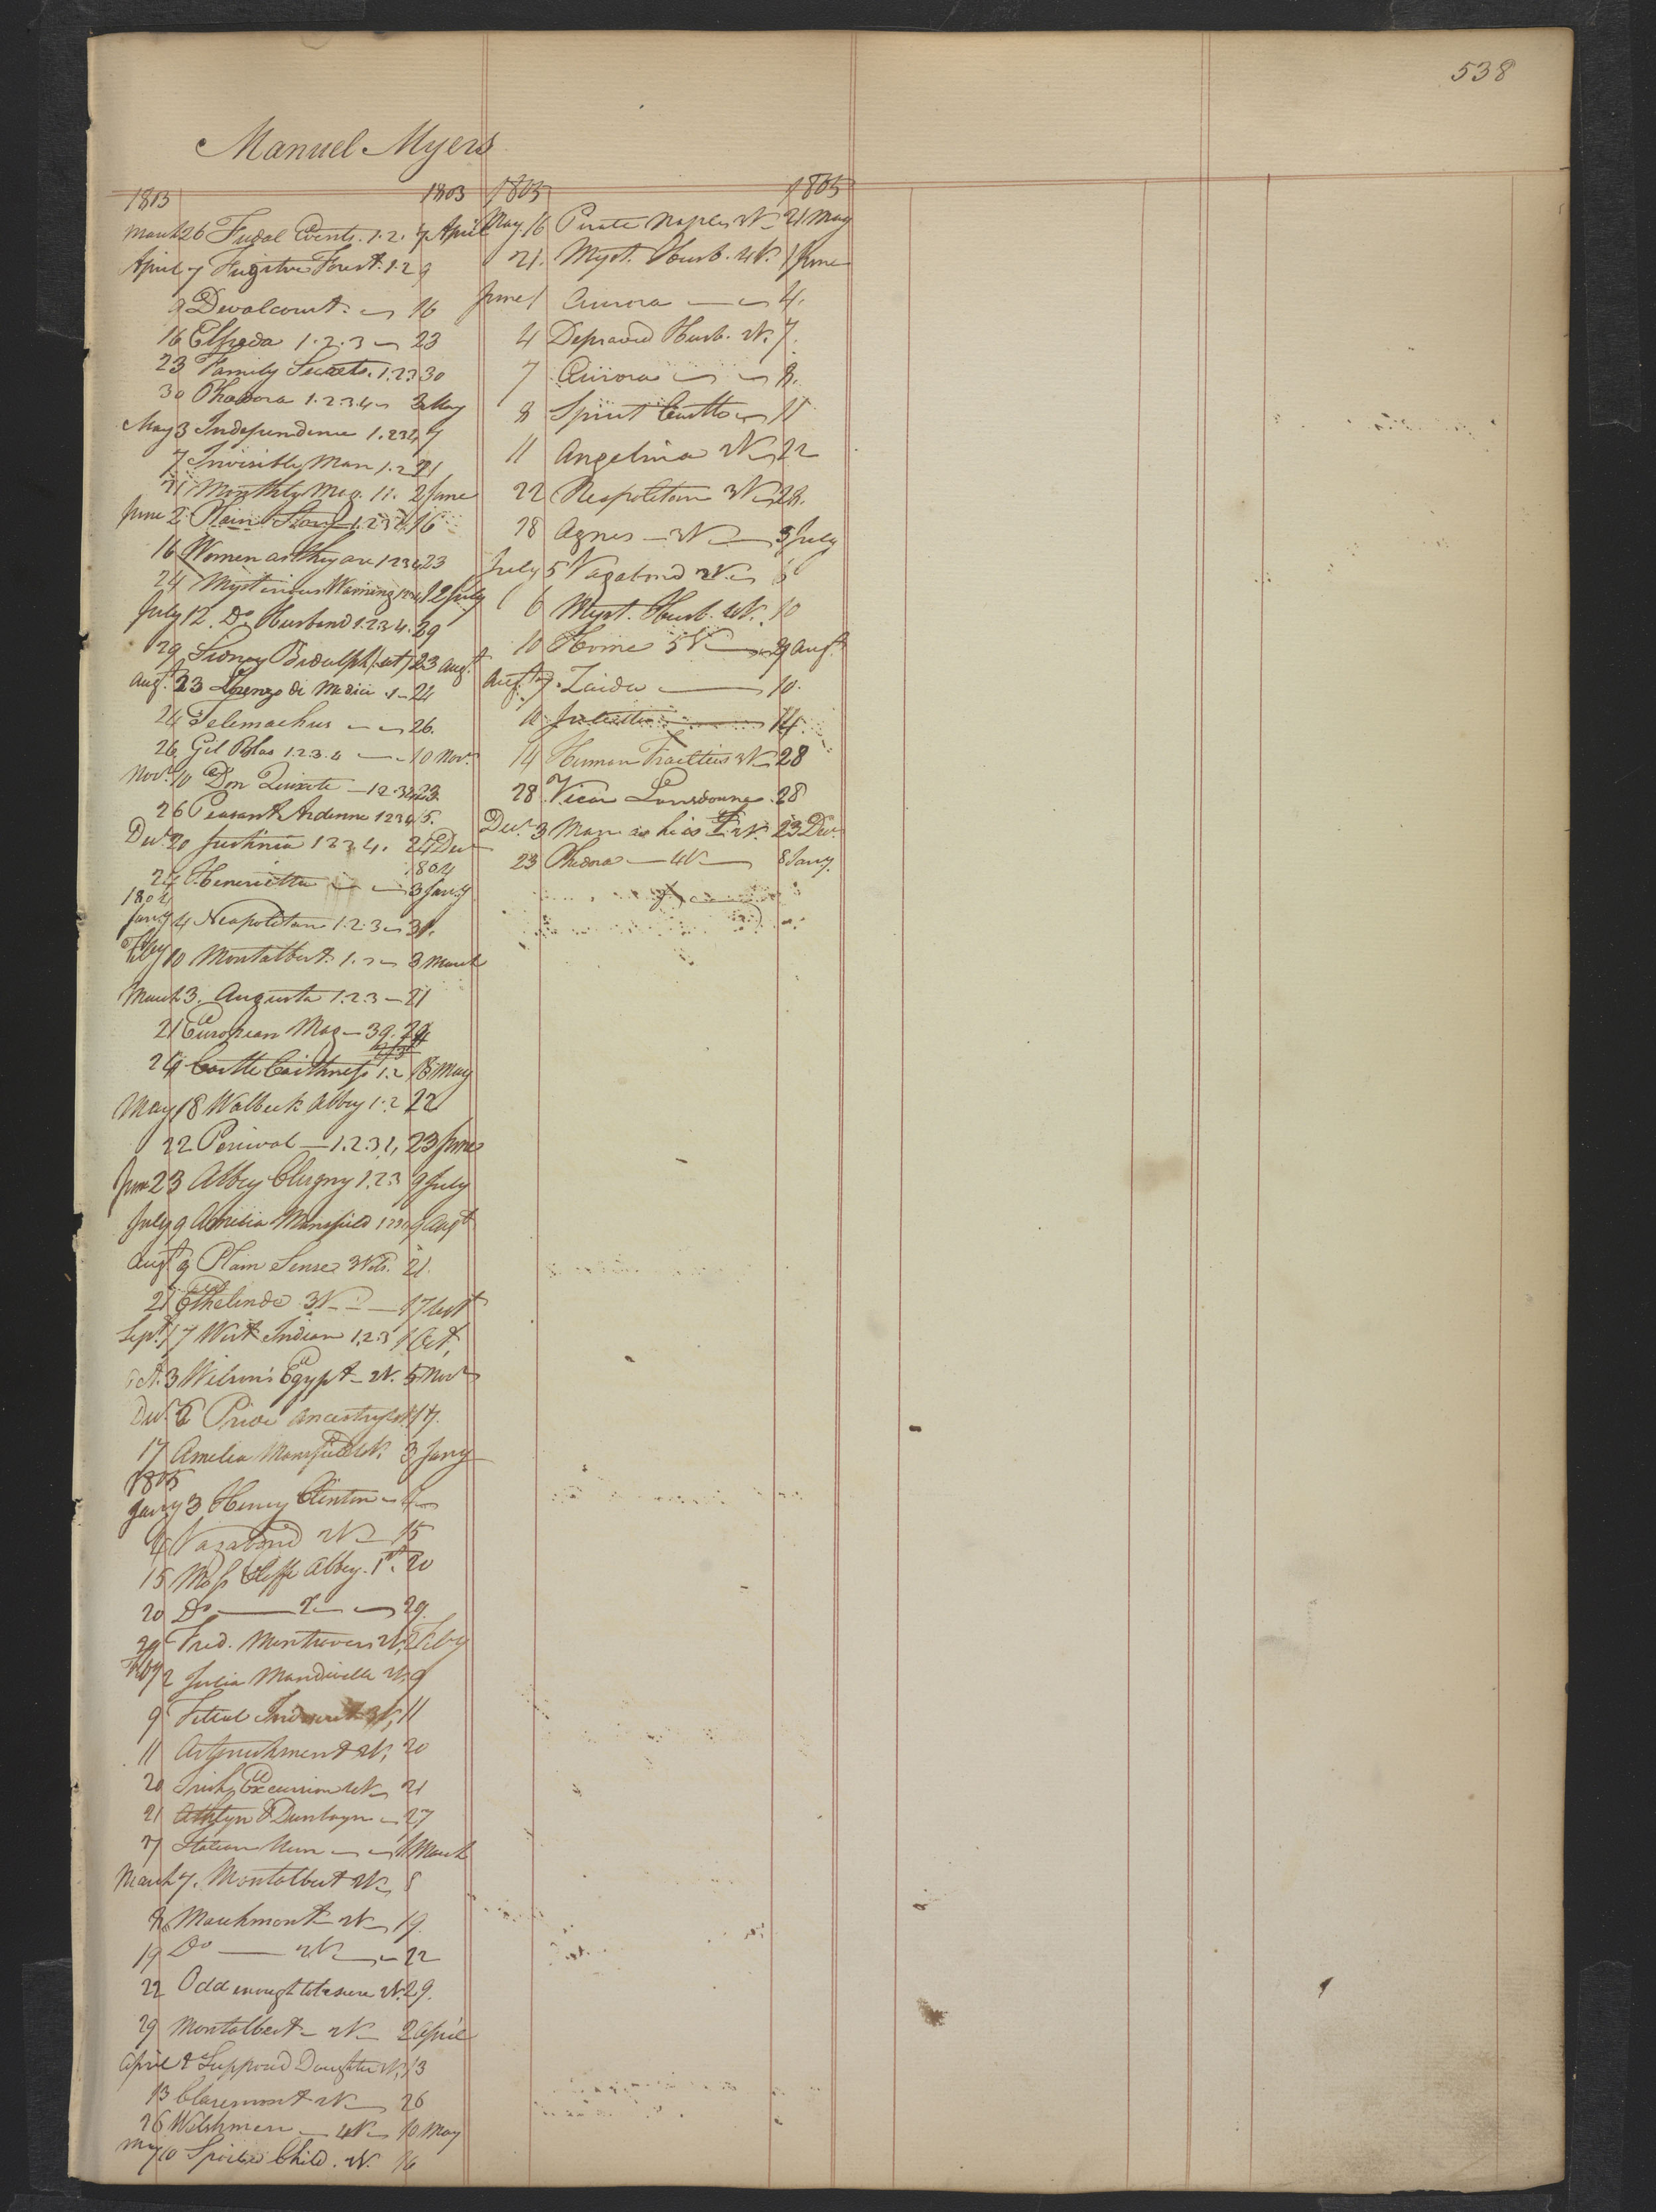 538
Manuel Myers
1813 1803
March 26 Fudal Events. 1.2. 7 April
April 7 Fugitive Forest. 1.2 9
9 Devalcourt 16
16 Elfreda 1.2.3 23
23 Family Secrets. 1.23 30
30 Phedora 1.2.3.4 3 May
May 3 Independence 1.234 7
7 Invisible Man 1.2 21
21 Monthly Mag. 11. 2 June
June 2 Plain Story 1.234 16
16 Women as they are 1234 23
24 Mysterious Warning 1234 12 July
July 12. Do Husband 1.234. 29
29 Sidney Bidulph 23 Augt
Augt. 23 Lorenzo di Medici 1 24
24 Telemachus 26.
26 Gil Blas 1.2.3.4 10 Novr
Novr 10 Don Quixote 1234 23
26 Peasant Ardenne 1234 5.
Decr 20 Justinia 1234. 24 Decr
1804
24 Henerietta 3 Jany
1804
Jany 4 Neapolitan 1.2.3 31.
Feby 10 Montalbert. 1.2 3 March
March 3. Augusta 1.2.3 21
21 European Mag 39. 24
24 Castle Caithness 1.2 18 May
May 18 Walbeck Abbey 1.2 22
22 Percival 1.2.3.4, 23 June
June 23 Abbey Clugny 1.2.3 9 July
July 9 Amelia Mansfield 9 Augt
Augt 9 Plain Sense 3 Vols. 21.
21 Ethelinde 3V 17
Sept. 17 West Indian 1.2.3 1 Oct,
Oct. 3 Wilson's Egypt 2V. 5 Novr
Decr. 6 Price Ancestry 17.
17 Amelia Mansfield 4V. 3 Jany
1805
Jany 3 Henry Clinton 4
4 Vagabond 2V 15
15 Moss Cliff Abbey. 1st. 20
20 Do 2 29.
29 Fred. Montravers 2V, 2 Feby
Feby 2 Julia Mandivilla 2V, 9
9 3V, 11
11 Astonishment 2V, 20
20 Irish Excursion 4V 21
21 Athlyn & Dunbayn 27
27 Italian Nun March
March 7. Montalbert 2V 8
8 Marchmont 2V 19.
19 Do 2V 22
22 Odd enough to be sure 2V. 29.
29 Montalbert 2V 2 April
April 2 Supposed Daughter V, 13
13 Claremont 2V 26
26 Welshmen 4V 10 May
May 10 Spoiled Child. 2V. 16
1805 1805
May. 16 Pirate Naples 2V 21 May
21. Myst. Husb. 4V. 1 June
June 1 Aurora 4.
4 Depraved Husb. 2V. 7.
7 Aurora 8.
8 Spirit Castle 11
11 Angelina 2V 22
22 Neapolitan 3V 28.
28 Agnes 3V 5 July
July 5 Vagabond 2V 6
6 Myst. Husb. 4V. 10
10 Home 5V 9 Augt
Augt 9. Zaida 10.
10 14
14 Human Frailties 3V 28
28. Vicar Lansdowne. 28
Decr. 3 Man as he is 2V. 23 Decr.
23 Phedora 4V 8 Jany.